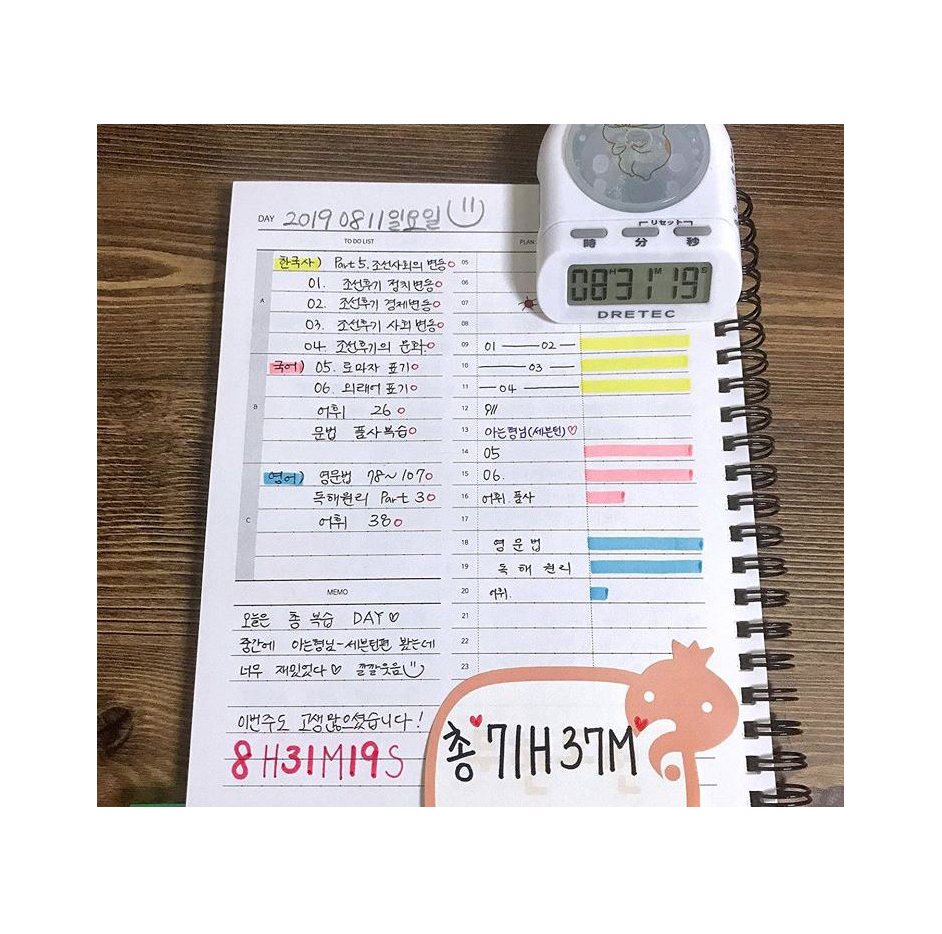 DAY 2019 08 11 일요일
TO DO LIST
한국사) Part 5. 조선사회의 변동
A
01. 조선후기 정치변동
02. 조선후기 경제변동
03. 조선후기 사회변동
04. 조선후기의 문화
국어) 05. 로마자 표기
06. 외래어 표기
B
어휘 26
문법 품사복습
영어) 영문법 78~107
독해원리 Part 3
C
어휘 38
MEMO
오늘은 총 복습 DAY ♡
중간에 아는형님-세븐틴편 봤는데
너무 재밌었다 ♡ 깔깔웃음
이번주도 고생많으셨습니다!
8H31M19S
PLAN
05
06
07
08
09 01 02
10 03
11 04
12
13 아는형님(세븐틴)♡
14 05
15 06.
16 어휘. 품사
17
18 영문법
19 독해원리
20 어휘.
21
22
23
총 71H 37M
リセット
時 分 秒
08H31M19S
DRETEC